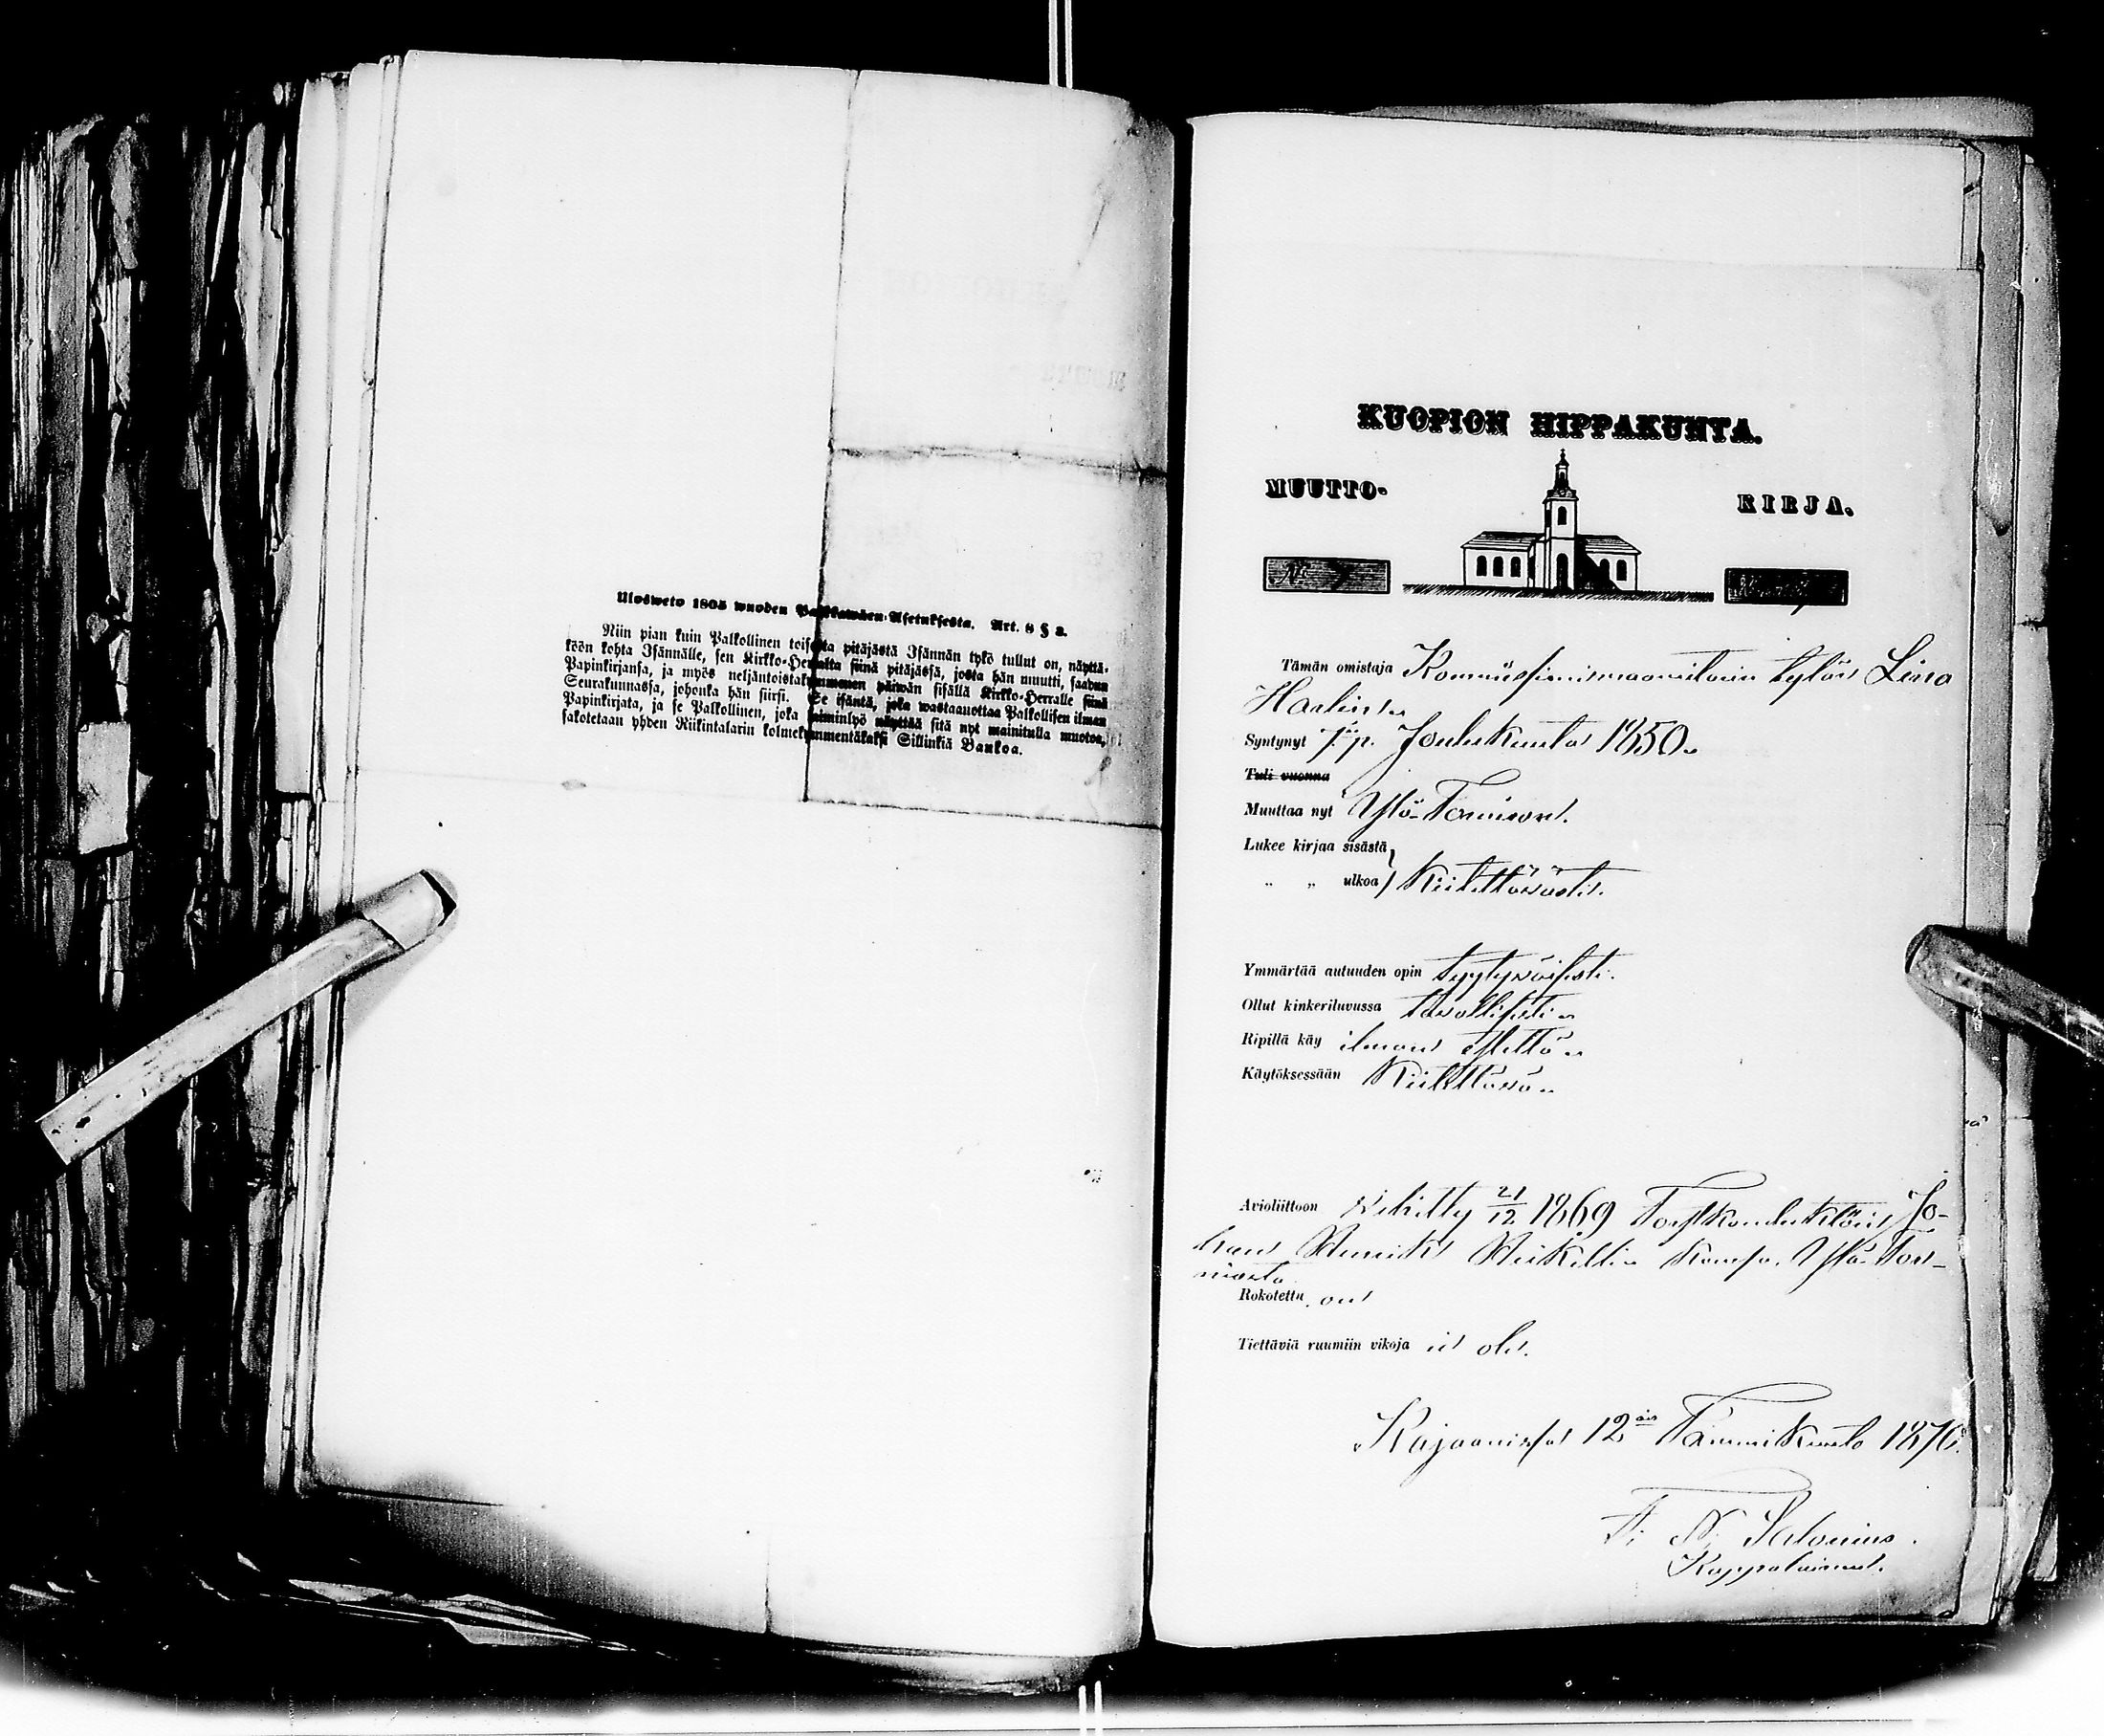 Ulosweto 1805 wuoden Palkkawäen-Asetuksesta. Art. 8 § 3.
Niin pian kuin Palkollinen toisesta pitäjästä Isännän tykö tullut on, näyttä-
köön kohta Isännälle, sen Kirkko-Herralta siinä pitäjässä, josta hän muutti, saadun
Papinkirjansa, ja myös neljäntoistakymmenen päiwän sisällä Kirkko-Herralle siinä
Seurakunnassa, johonka hän siirsi. Se isäntä, joka wastaanottaa Palkollisen ilman
Papinkirjata, ja se Palkollinen, joka laiminlyö näyttää sitä nyt mainitulla muotoa,
sakotetaan yhden Riikintalarin kolmekymmentäkaksi Sillinkiä Bankoa.
KUOPION HIPPAKUNTA.
MUUTTO-
KIRJA.
N:o 7
Tämän omistaja tytär Lina
Syntynyt 7 p. Joulukuuta 1850.
Tuli vuonna
Muuttaa nyt Ylö-Tornioon.
Lukee kirjaa sisästä
„ „ ulkoa Kiitettävästi.
Ymmärtää autuuden opin tyytyväisesti.
Ollut kinkeriluvussa tavallisesti
Ripillä käy ilman estettä
Käytöksessään Kiitettävä
Avioliittoon Vihitty 21/12 1869 Jo-
han Henrik kanssa, Ylö-Tor-
niosta.
Rokotettu on
Tiettäviä ruumiin vikoja ei ole.
Kajaanissa 12 Tammikuuta 1870.
N. Salonius.
Kappalainen.